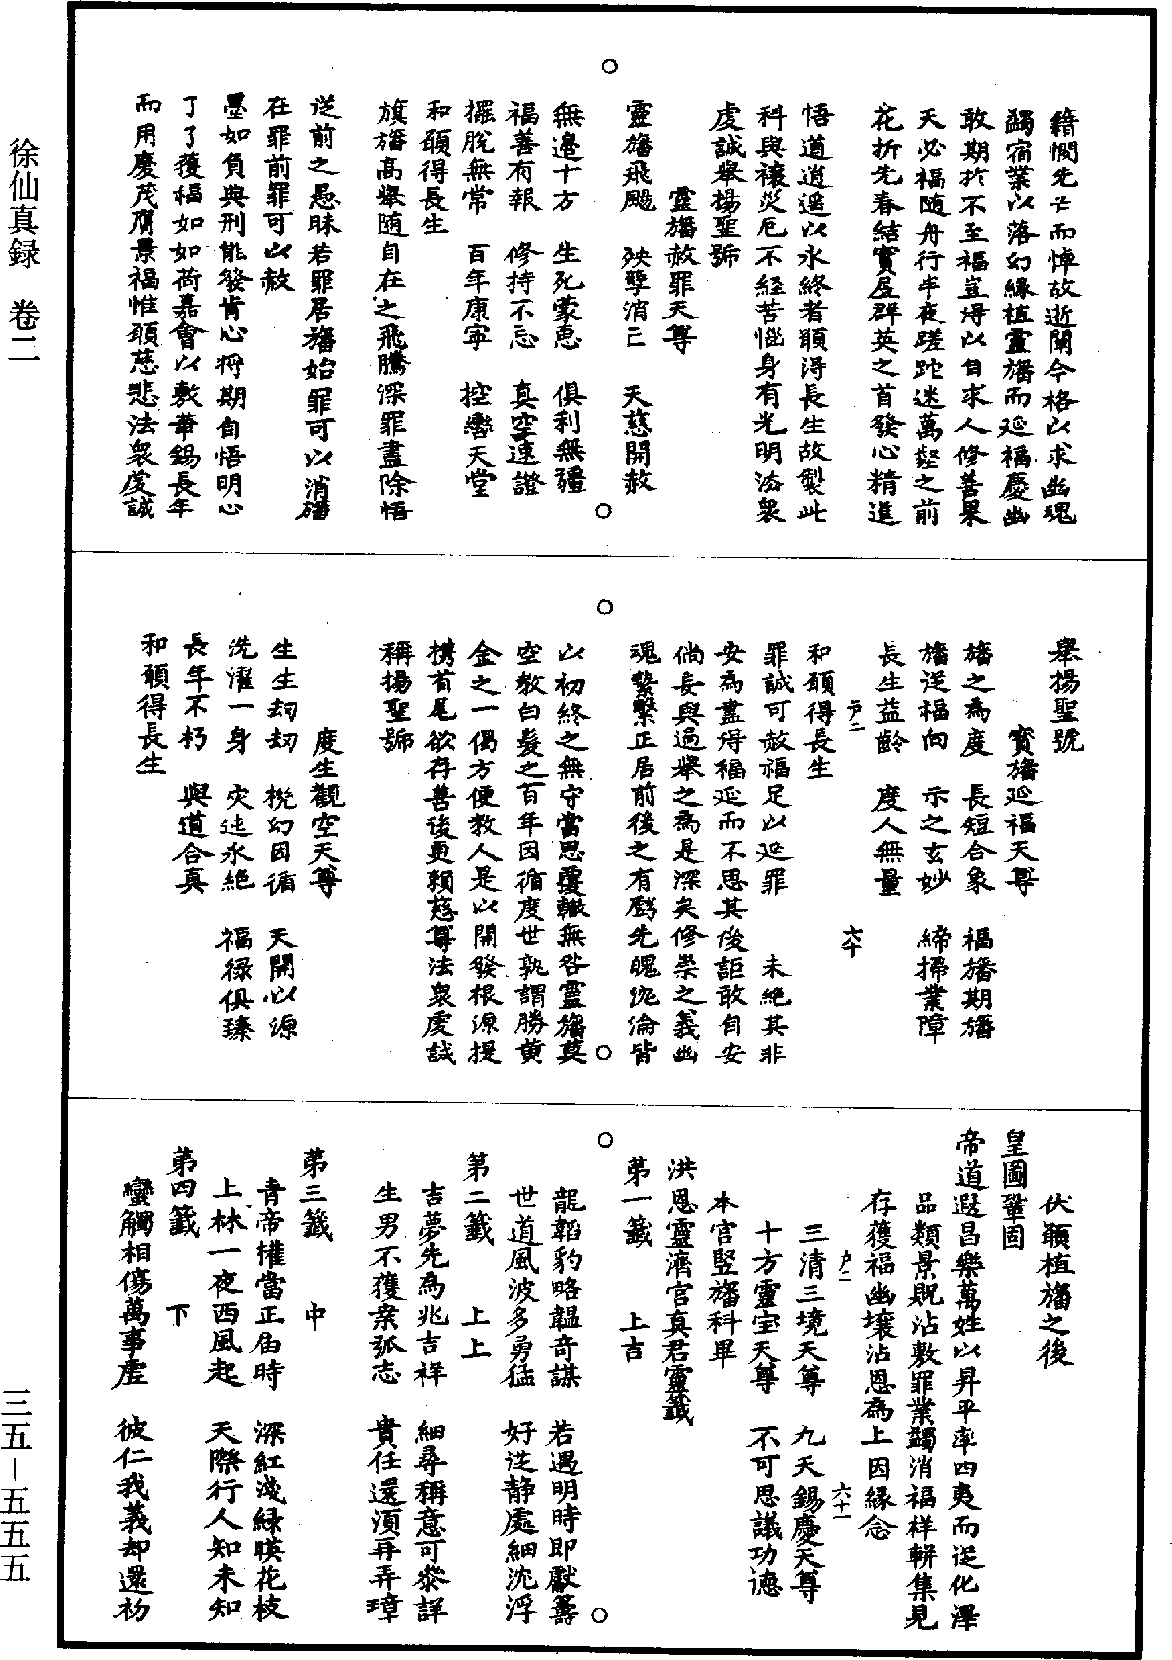 籍憫先亡而悼故逝闡今格以求幽魂
蠲宿業以落幻緣植靈旛而延福慶幽
敢期於不至福豈得以自求人修善果
天必福隨舟行半夜蹉跎迷萬壑之前
花折先春結實居群英之首發心精進
悟道逍遥以永終者願得長生故製此
科與禳災厄不經苦惱身有光明法衆
虔誠舉揚聖號
靈旛赦罪天尊
靈旛飛颺　殃孽消亡　天慈開赦
無邊十方　生死蒙恵　俱利無疆
福善有報　修持不忘　真空速證
擺脫無常　百年康寧　控鸞天堂
和願得長生
旗旛高舉隨自在之飛騰深罪盡除悟
從前之愚昧若罪居旛始罪可以消旛
在罪前罪可以赦
墨如負與刑能發肯心將期自悟明心
了了獲福如如荷嘉會以敷華錫長年
而用慶茂膺景福惟願慈悲法衆虔誠
舉揚聖號
寳旛延福天尊
旛之為度　長短合象　福旛期旛
旛逆福向　示之玄妙　締掃業障
長生益齡　度人無量
户二　六十
和願得長生
罪誠可赦福足以延罪　未絶其非
安為盡得福延而不思其後詎敢自安
倘長與過舉之為是深矣修崇之義幽
魂繫繫正居前後之有愆先魄沈淪皆
以初終之無守當思覆轍無咎靈旛莫
空教白髮之百年因循度世孰謂勝黄
金之一偈方便教人是以開發根源提
携首尾欲存善後更頼慈尊法衆虔誠
稱揚聖號
度生觀空天尊
生生刼刼　梲幻因循　天開心源
洗濯一身　灾迍永絶　福祿俱臻
長年不朽　與道合真
和願得長生
伏願植旛之後
皇圖鞏固
帝道遐昌樂萬姓以昇平率四夷而從化澤
品類景貺沾敷罪業蠲消福祥輧集見
存獲福幽壤沾恩為上因緣念
户二　六十一
三清三境天尊　九天錫慶天尊
十方靈宝天尊　不可思議功德
本宫竪旛科畢
洪恩靈濟宫真君靈籤
第一籤　上吉
龍韜豹略韞奇謀　若遇明時即獻籌
世道風波多勇猛　好從静處細沈浮
第二籤　上上
吉夢先為兆吉祥　細尋稱意可叅詳
生男不獲亲弧志　貴任還湏再弄璋
第三籤　中
青帝權當正届時　深紅淺緑暎花枝
上林一夜西風起　天際行人知未知
第四籤　下
蠻觸相傷萬事虗　彼仁我義却還初
徐仙真録　卷二
三五－五五五